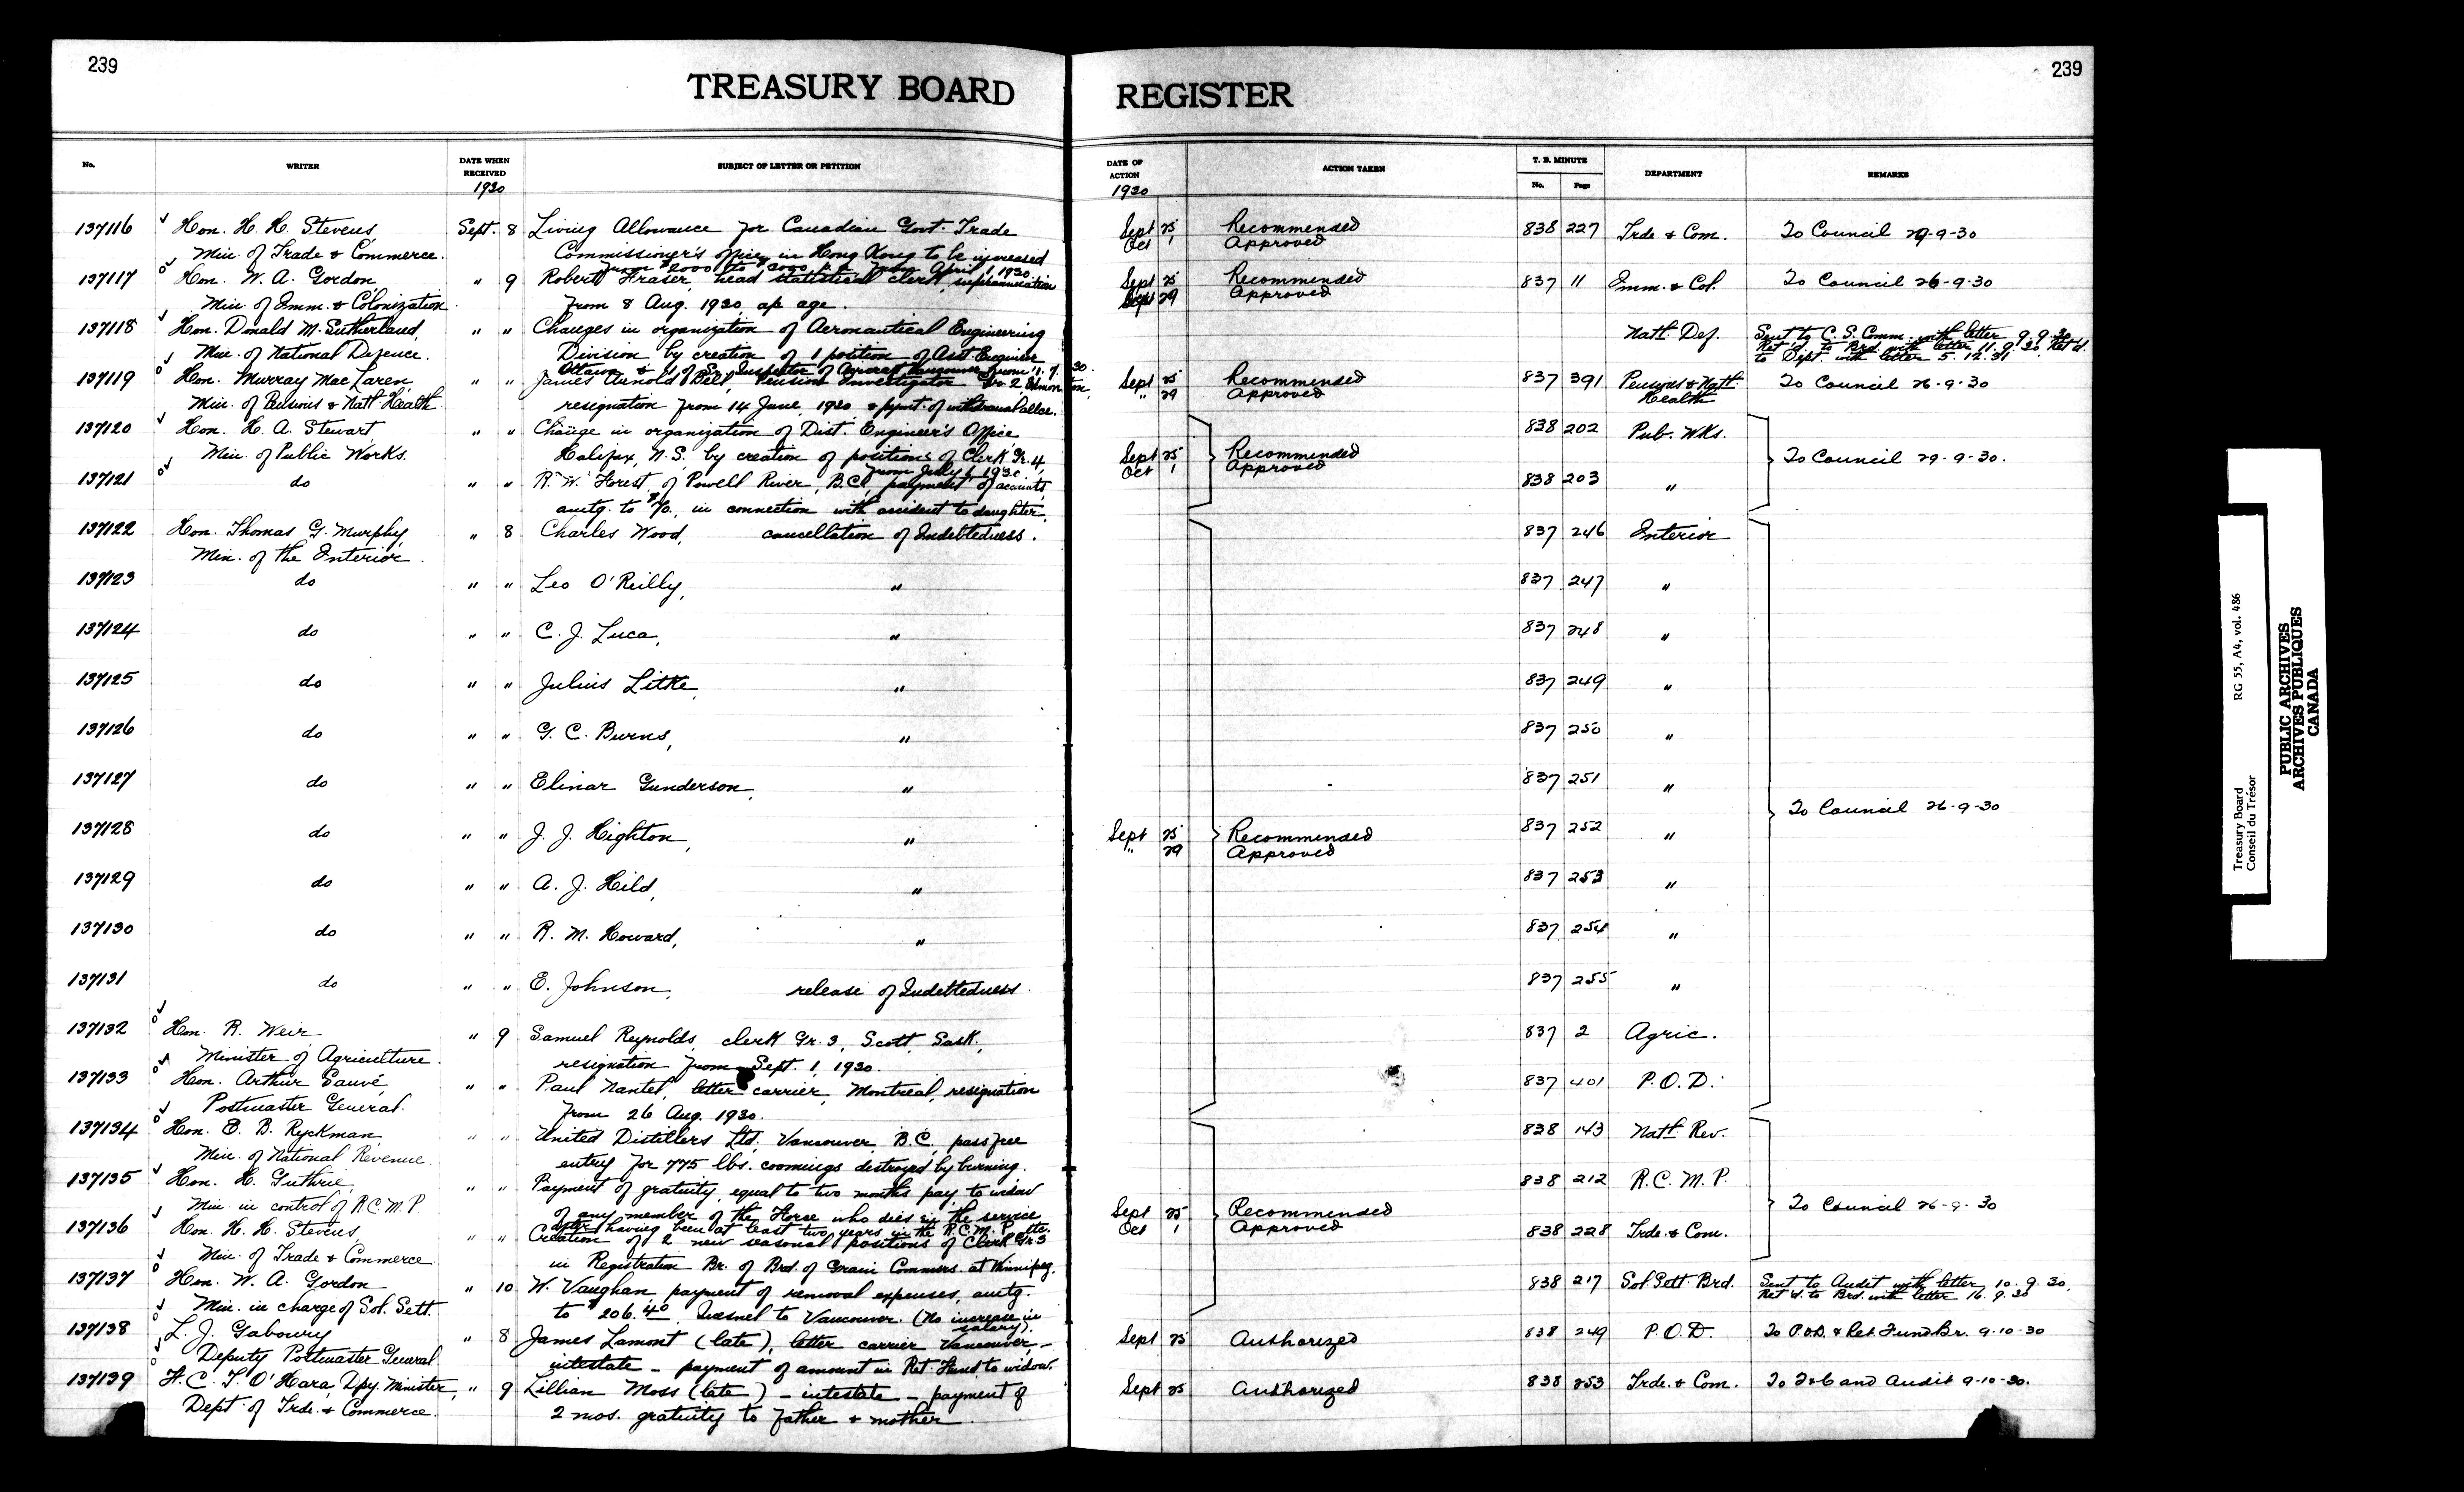 239
TREASURY BOARD REGISTER
239
No. WRITER DATE WHEN RECEIVED 1930 SUBJECT OF LETTER OR PETITION DATE OF ACTION 1930 ACTION TAKEN T. B. MINUTE No. Page DEPARTMENT REMARKS
137116 Hon. H. H. Stevens Sept. 8 Living Allowance for Canadian Govt. Trade Sept 25 Recommended 838 227 Trde. & Com. To Council 29-9-30
Min. of Trade & Commerce. Commissioner's office in Hong Kong to be increased Oct 1 Approved
from $2000 to $3000 p.a. from April 1, 1930.
137117 Hon. W. A. Gordon, " 9 Robert Fraser, head statistical clerk, superannuation Sept 25 Recommended 837 11 Imm. & Col. To Council 26-9-30
Min. of Imm. & Colonization from 8 Aug. 1930, ap age. Sept 29 Approved
137118 Hon. Donald M. Sutherland, " " Changes in organization of Aeronautical Engineering Natl. Def. Sent to C. S. Comm. with letter 9.9.30
Min. of National Defence. Division by creation of 1 position of Asst. Engineer Ret'd. to Brd. with letter 11.9.30 Ret'd.
Ottawa & 1 of Sr. Inspector of Aircraft Vancouver from 11.7.30. to Dept. with letter 5.12.31
137119 Hon. Murray MacLaren, " " James Arnold Bell, Pension Investigator Gr. 2, Edmonton, Sept 25 Recommended 837 391 Pensions & Natl. Health To Council 26-9-30
Min. of Pensions & Natl. Health resignation from 14 June, 1930, & pymt. of withdrawal allce. " 29 Approved
137120 Hon. H. A. Stewart, " " Change in organization of Dist. Engineer's Office 838 202 Pub. Wks.
Min. of Public Works. Halifax, N.S. by creation of positions of Clerk Gr. 4, Sept 25 Recommended To Council 29-9-30.
from July 1, 1930 Oct 1 Approved
137121 do " " R. W. Forest, of Powell River, B.C., payment of accounts, 838 203 "
amtg. to $70., in connection with accident to daughter.
137122 Hon. Thomas G. Murphy, " 8 Charles Wood, cancellation of Indebtedness. 837 246 Interior
Min. of the Interior.
137123 do " " Leo O'Reilly, " 837 247 "
137124 do " " C. J. Luca, " 837 248 "
137125 do " " Julius Litke, " 837 249 "
137126 do " " G. C. Burns, " 837 250 "
137127 do " " Elinar Gunderson, " 837 251 "
To Council 26-9-30
137128 do " " J. J. Highton, " Sept 25 Recommended 837 252 "
" 29 Approved
137129 do " " A. J. Hild, " 837 253 "
137130 do " " R. M. Howard, " 837 254 "
137131 do " " E. Johnson, release of Indebtedness. 837 255 "
137132 Hon. R. Weir, " 9 Samuel Reynolds, clerk Gr. 3, Scott, Sask., 837 2 Agric.
Minister of Agriculture. resignation from Sept. 1, 1930.
137133 Hon. Arthur Sauvé, " " Paul Nantel, letter carrier, Montreal, resignation 837 401 P.O.D.
Postmaster General. from 26 Aug. 1930.
137134 Hon. E. B. Ryckman, " " United Distillers Ltd. Vancouver, B.C. pass free 838 143 Natl. Rev.
Min. of National Revenue. entry for 775 lbs. coomings destroyed by burning.
137135 Hon. H. Guthrie, " " Payment of gratuity, equal to two months pay to widow 838 212 R.C.M.P.
Min. in control of R.C.M.P. of any member of the Force who dies in the service Sept 25 Recommended To Council 26-9-30
after having been at least two years in the R.C.M. Police. Oct 1 Approved
137136 Hon. H. H. Stevens, " " Creation of 2 new seasonal positions of Clerk Gr. 3 838 228 Trde. & Com.
Min. of Trade & Commerce in Registration Br. of Brd. of Grain Commrs. at Winnipeg.
137137 Hon. W. A. Gordon " 10 W. Vaughan, payment of removal expenses, amtg. 838 217 Sol. Sett. Brd. Sent to Audit with letter 10.9.30.
Min. in charge of Sol. Sett. to $206.40 Quesnel to Vancouver. (No increase in salary). Ret'd. to Brd. with letter 16.9.30
137138 L. J. Gaboury " 8 James Lamont (late), letter carrier Vancouver, - Sept 25 Authorized 838 249 P.O.D. To P.O.D. & Ret. Fund Br. 9-10-30
Deputy Postmaster General intestate - payment of amount in Ret. Fund to widow.
137139 F. C. T. O'Hara, Dpy. Minister, " 9 Lillian Moss (late) - intestate - payment of Sept 25 Authorized 838 253 Trde. & Com. To T&C and Audit 9-10-30.
Dept. of Trde. & Commerce. 2 mos. gratuity to father & mother.
Treasury Board RG 55, A4, vol. 486
Conseil du Trésor
PUBLIC ARCHIVES
ARCHIVES PUBLIQUES
CANADA